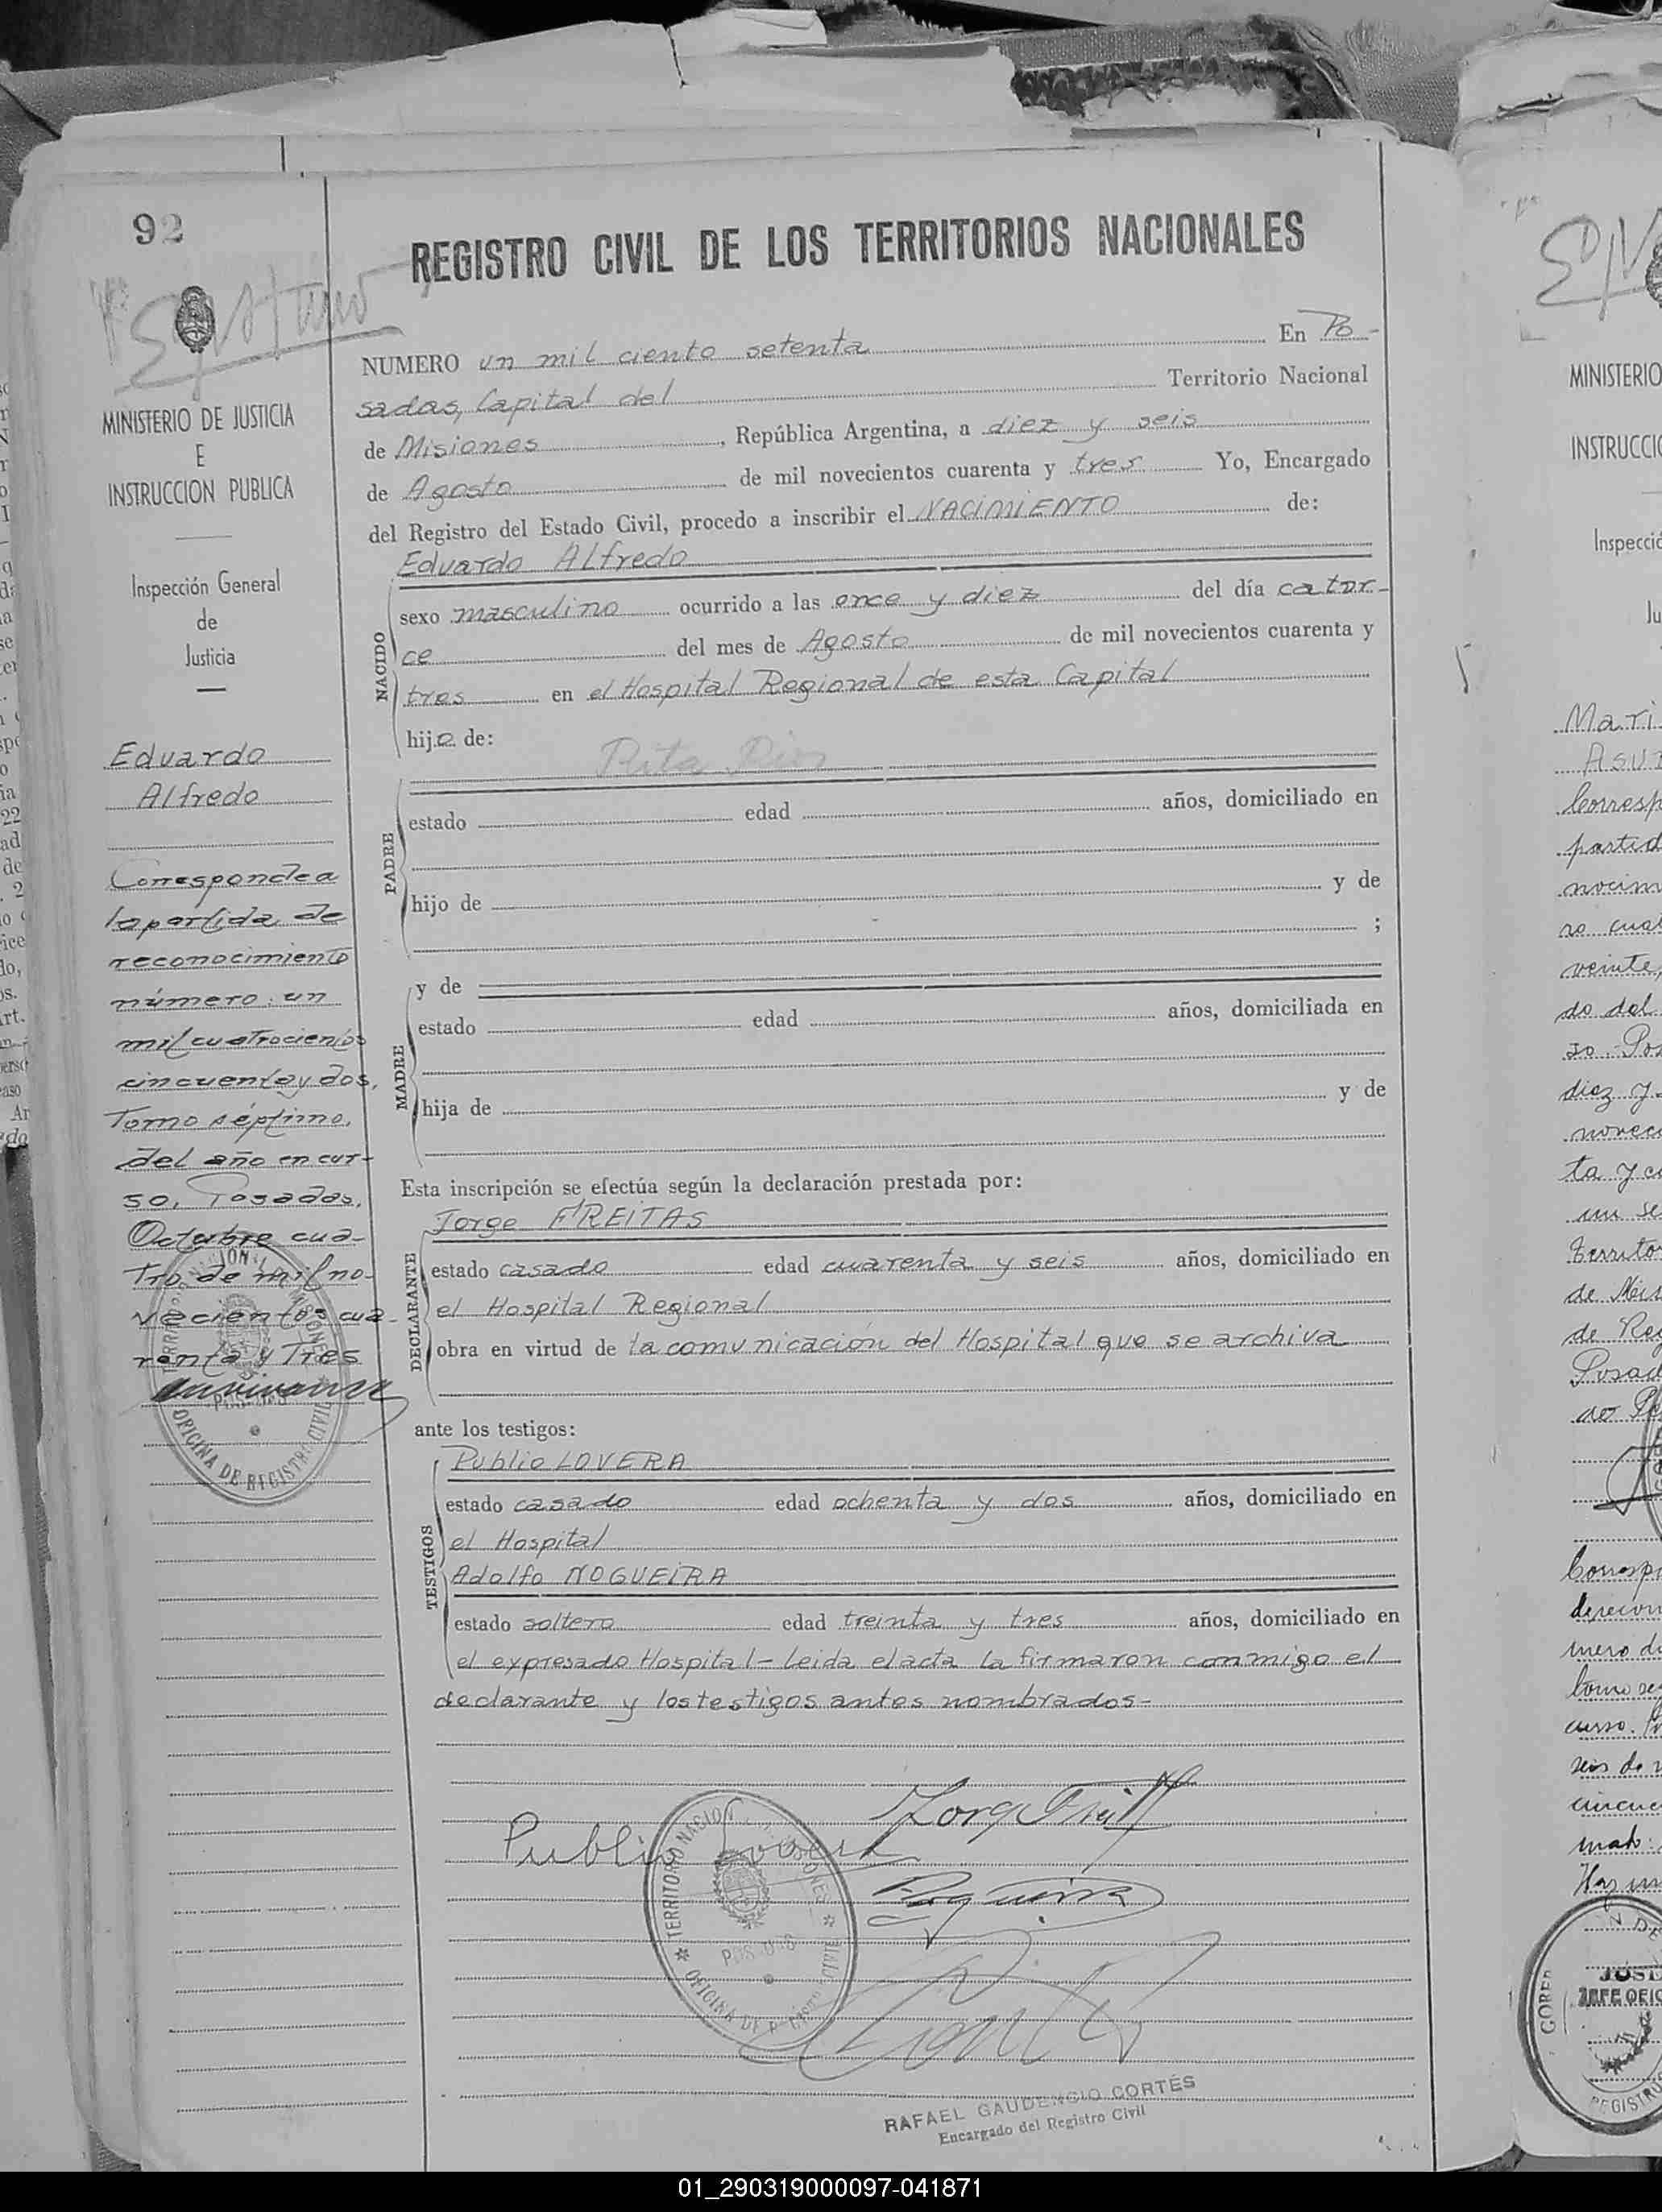 92
REGISTRO CIVIL DE LOS TERRITORIOS NACIONALES
MINISTERIO DE JUSTICIA
E
INSTRUCCION PUBLICA
Inspección General
de
Justicia
Eduardo
Alfredo
Corresponde a
la partida de
reconocimiento
número. un
mil cuatrocientos
cincuenta y dos,
Tomo séptimo,
del año en cur-
so, Posadas,
Octubre cua-
tro de mil no-
vecientos cua-
renta y Tres
OFICINA DE REGISTRO CIVIL
NUMERO un mil ciento setenta En Po-
sadas, Capital del Territorio Nacional
de Misiones, República Argentina, a diez y seis
de Agosto de mil novecientos cuarenta y tres Yo, Encargado
del Registro del Estado Civil, procedo a inscribir el NACIMIENTO de:
Eduardo Alfredo
NACIDO
sexo masculino ocurrido a las once y diez del día cator-
ce del mes de Agosto de mil novecientos cuarenta y
tres en el Hospital Regional de esta Capital
hijo de:
Rita Rios
PADRE
estado edad años, domiciliado en
hijo de y de
;
MADRE
y de
estado edad años, domiciliada en
hija de y de
Esta inscripción se efectúa según la declaración prestada por:
DECLARANTE
Jorge FREITAS
estado casado edad cuarenta y seis años, domiciliado en
el Hospital Regional
obra en virtud de la comunicación del Hospital que se archiva
ante los testigos:
TESTIGOS
Publio LOVERA
estado casado edad ochenta y dos años, domiciliado en
el Hospital
Adolfo NOGUEIRA
estado soltero edad treinta y tres años, domiciliado en
el expresado Hospital - leida el acta la firmaron conmigo el
declarante y los testigos antes nombrados-
Publio Lovera
TERRITORIO NACIONAL
POSADAS
RAFAEL GAUDENCIO CORTÉS
Encargado del Registro Civil
MINISTERIO
INSTRUCCIO
Inspecció
Ju
Mari
Corresp
partid
nocim
ro cuat
veinte,
do del
diez y
ta y c
Territo
de Mis
de Reg
Posad
JOSE
JEFE OFIC
01_290319000097-041871